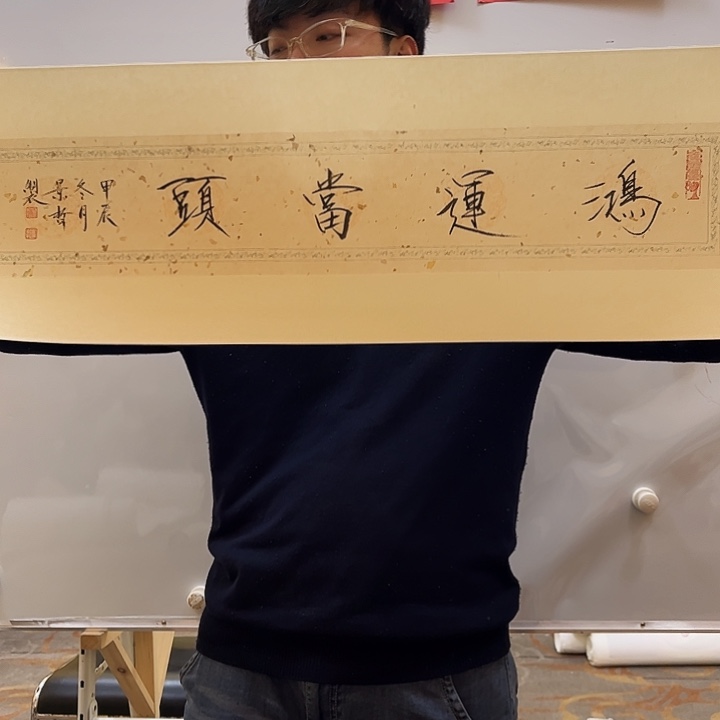 鴻運當頭
甲辰
冬月
景哲
製